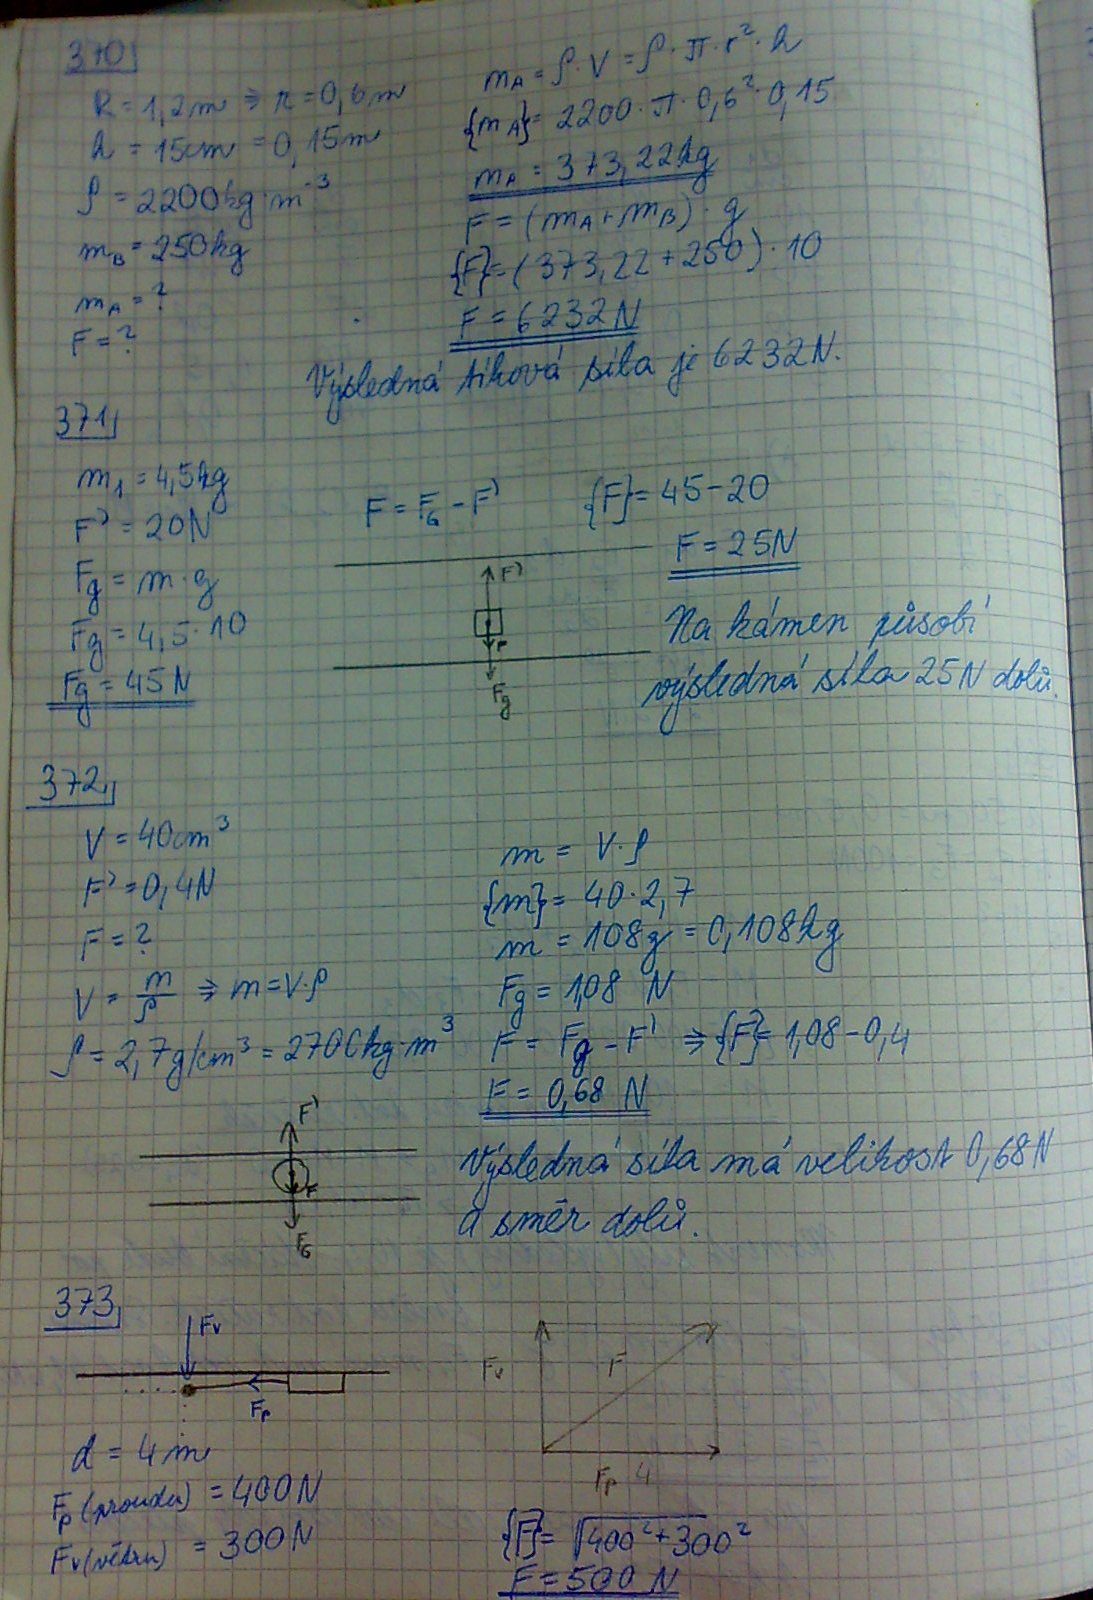 370
R = 1,2m ⇒ r = 0,6m
h = 15cm = 0,15m
ρ = 2200kg·m⁻³
m_B = 250kg
m_A = ?
F = ?
m_A = ρ·V = ρ·π·r²·h
{m_A} = 2200·π·0,6²·0,15
m_A = 373,22kg
F = (m_A + m_B)·g
{F} = (373,22 + 250)·10
F = 6232N
Výsledná tíhová síla je 6232N.
371
m₁ = 4,5kg
F' = 20N
F_g = m·g
F_g = 4,5·10
F_g = 45N
F = F_G - F'
{F} = 45-20
F = 25N
F'
F
F_g
Na kámen působí
výsledná síla 25N dolů.
372
V = 40cm³
F' = 0,4N
F = ?
V = m/ρ ⇒ m = V·ρ
ρ = 2,7g/cm³ = 2700kg·m³
m = V·ρ
{m} = 40·2,7
m = 108g = 0,108kg
F_g = 1,08 N
F = F_g - F' ⇒ {F} = 1,08-0,4
F = 0,68 N
F'
F
F_G
Výsledná síla má velikost 0,68N
a směr dolů.
373
F_v
F_p
d = 4m
F_p (proudu) = 400N
F_v (větru) = 300N
F_v
F
F_p 4
{F} = √400²+300²
F = 500 N